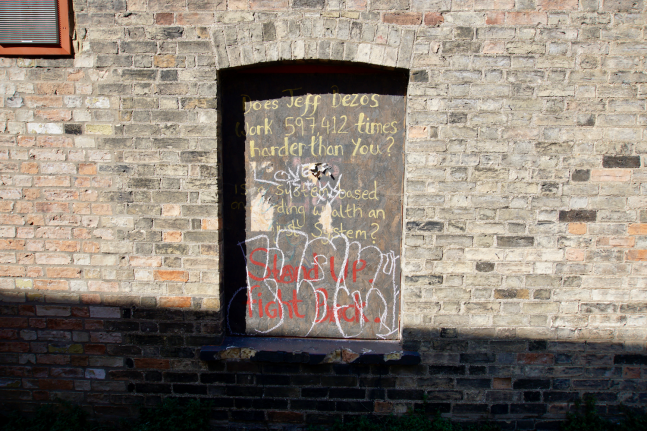 Does Jeff Bezos
Work 597,412 times
harder than You?
Is a System based
on wealth an
System?
Stand UP.
Fight Back.